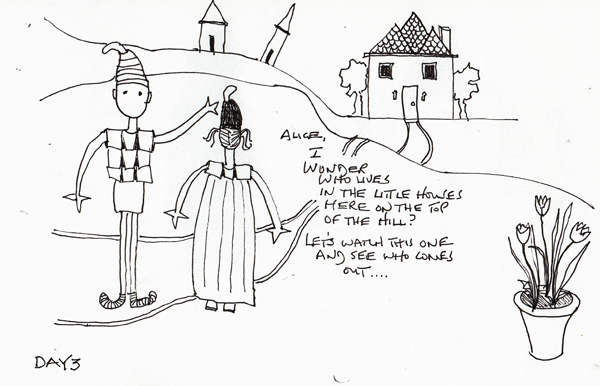 ALICE,
I
WONDER
WHO LIVES
IN THE LITTLE HOUSES
HERE ON THE TOP
OF THE HILL?
LET'S WATCH THIS ONE
AND SEE WHO COMES
OUT....
DAY3